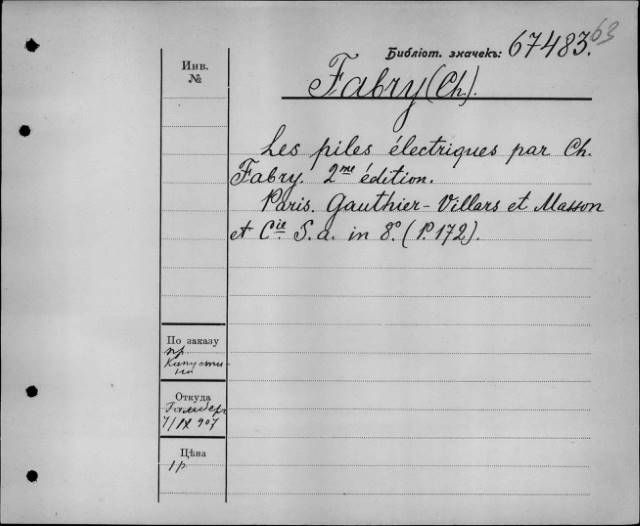 Библіот. значекъ: 67483. 63
Инв.
№
Fabry (Ch.).
Les piles électriques par Ch.
Fabry. 2me édition.
Paris. Gauthier-Villars et Masson
et Cie. S. a. in 8°. (P. 172).
По заказу
пр
Капусти-
на
Откуда
7/IX 907
Цѣна
1 р